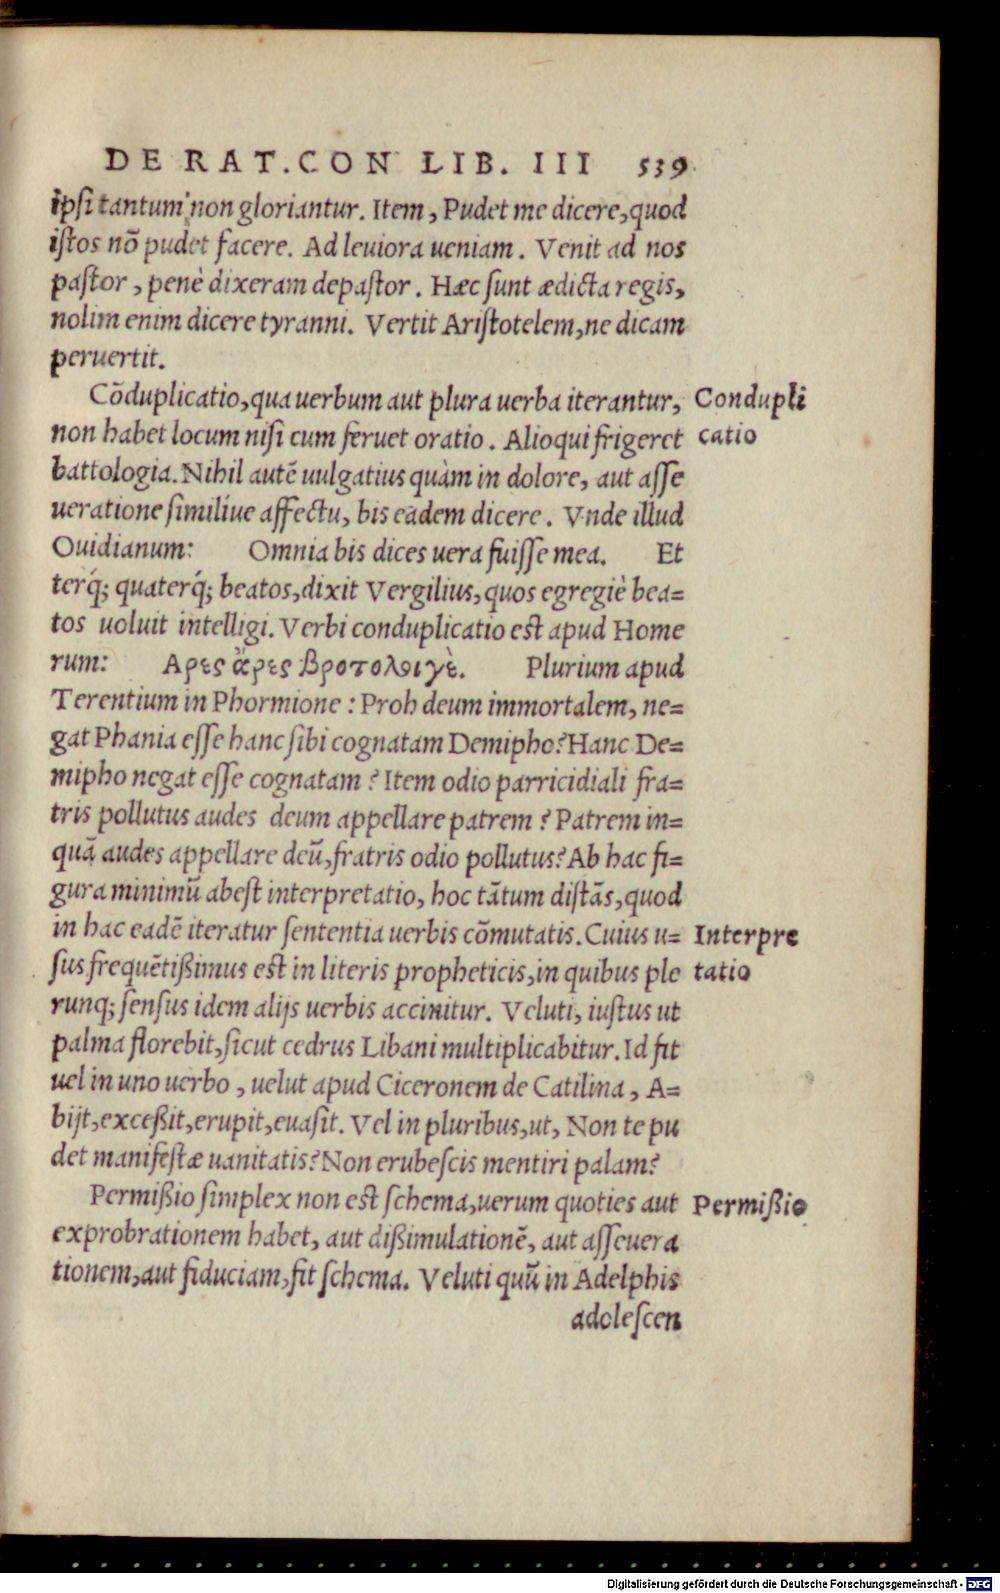 DE RAT. CON LIB. III 539
ipsi tantum non gloriantur. Item, Pudet me dicere, quod
istos nõ pudet facere. Ad leuiora ueniam. Venit ad nos
pastor, penè dixeram depastor. Hæc sunt ædicta regis,
nolim enim dicere tyranni. Vertit Aristotelem, ne dicam
peruertit.
Cõduplicatio, qua uerbum aut plura uerba iterantur,
Condupli
non habet locum nisi cum feruet oratio. Alioqui frigeret
catio
battologia. Nihil autẽ uulgatius quàm in dolore, aut asse
ueratione similíue affectu, bis eadem dicere. Vnde illud
Ouidianum: Omnia bis dices uera fuisse mea. Et
terq́; quaterq́; beatos, dixit Vergilius, quos egregiè bea=
tos uoluit intelligi. Verbi conduplicatio est apud Home
rum: Αρες ἄρες βροτολοιγὲ. Plurium apud
Terentium in Phormione: Proh deum immortalem, ne=
gat Phania esse hanc sibi cognatam Demipho? Hanc De=
mipho negat esse cognatam? Item odio parricidiali fra=
tris pollutus audes deum appellare patrem? Patrem in=
quã audes appellare deũ, fratris odio pollutus? Ab hac fi=
gura minimũ abest interpretatio, hoc tãtum distãs, quod
in hac eadẽ iteratur sententia uerbis cõmutatis. Cuius u=
Interpre
sus frequẽtißimus est in literis propheticis, in quibus ple
tatio
runq; sensus idem alijs uerbis accinitur. Veluti, iustus ut
palma florebit, sicut cedrus Libani multiplicabitur. Id fit
uel in uno uerbo, uelut apud Ciceronem de Catilina, A=
bijt, exceßit, erupit, euasit. Vel in pluribus, ut, Non te pu
det manifestæ uanitatis? Non erubescis mentiri palam?
Permißio simplex non est schema, uerum quoties aut
Permißio
exprobrationem habet, aut dißimulationẽ, aut asseuera
tionem, aut fiduciam, fit schema. Veluti quũ in Adelphis
adolescen
Digitalisierung gefördert durch die Deutsche Forschungsgemeinschaft - DFG